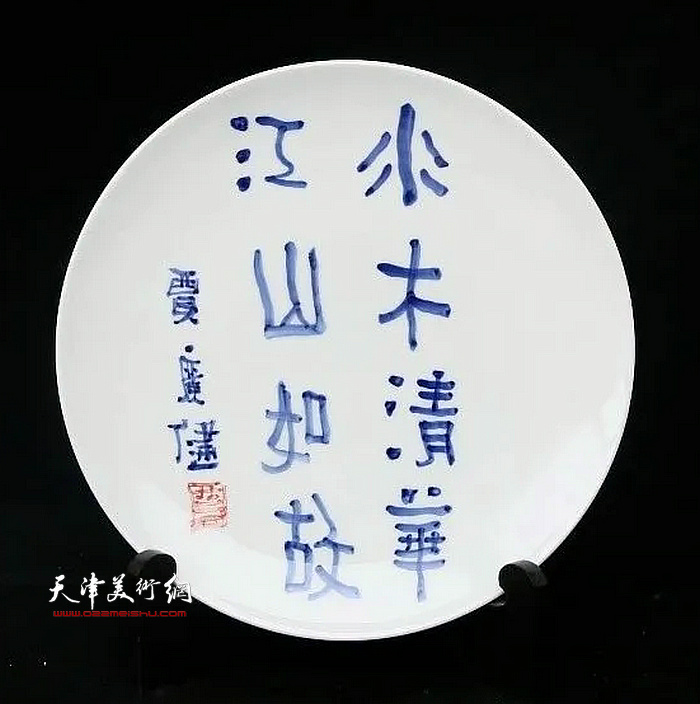 水木清華
江山如故
賈廣健
天津美術網
www.022meishu.com